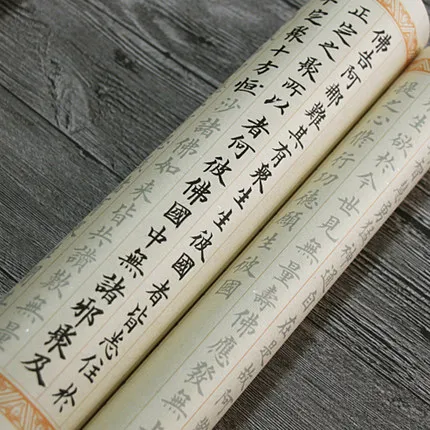 佛告阿難其有衆生生彼國者皆悉住於
正定之聚所以者何彼佛國中無諸邪聚及
定聚十方恒沙諸佛如來皆共讚歎無量
通自在是故阿
生欲於今世見無量壽佛應發無
提之心修行功德願生彼國